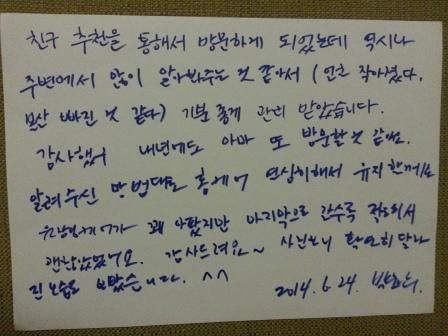 친구 추천을 통해서 방문하게 되었는데 역시나
주변에서 많이 알아봐주는 것 같아서 (얼굴 작아졌다.
살 빠진 것 같다) 기분 좋게 관리 받았습니다.
감사했어 내년에도 아마 또 방문할 것 같네요.
알려주신 방법대로 홈케어 열심히해서 유지할께요
꽤 아팠지만 마지막으로 갈수록 적응되서
괜찮았었어요. 감사드려요~ 사진보니 확연히 달라
진 모습을 봤습니다. ^^
2014. 6. 24.